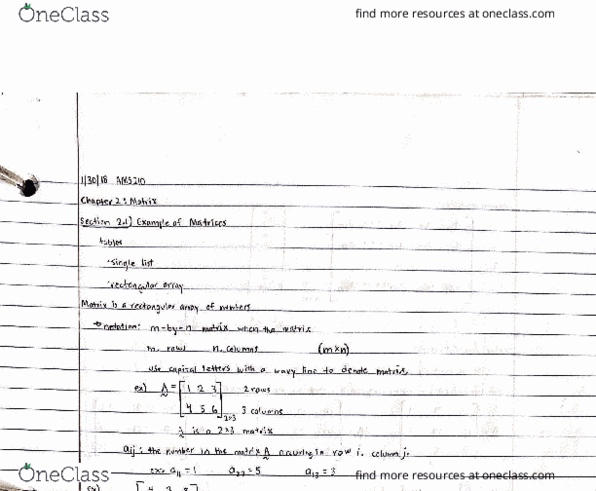 OneClass
find more resources at oneclass.com
1/30/18 AMS210
Chapter 2: Matrix
Section 2.1) Example of Matrices
tables
·single list
·rectangular array
Matrix is a rectangular array of numbers
notation: m-by-n matrix when the matrix
m. rows n. columns (m×n)
use capital letters with a wavy line to denote matrix.
ex) A = [1 2 3 2 rows
4 5 6]2×3 3 columns
A is a 2×3 matrix
aij: the number in the matrix A occuring in row i. column j.
ex: a11 = 1 a22 = 5 a13 = 3
OneClass
find more resources at oneclass.com
ex)